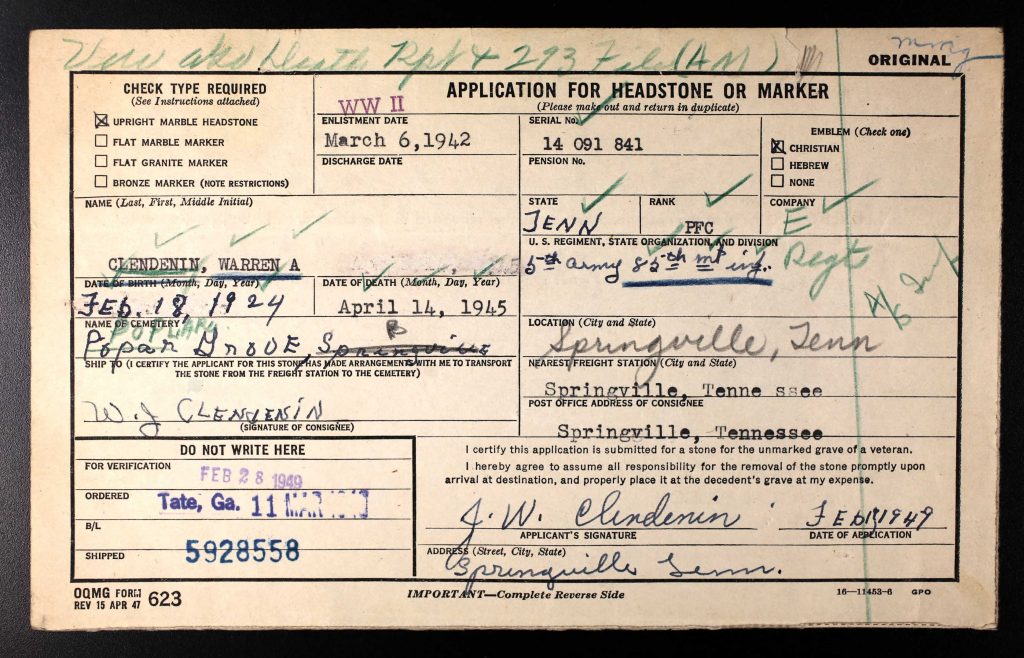 Death Rpt & 293 File (AM)
ORIGINAL
CHECK TYPE REQUIRED
(See Instructions attached)
UPRIGHT MARBLE HEADSTONE
FLAT MARBLE MARKER
FLAT GRANITE MARKER
BRONZE MARKER (NOTE RESTRICTIONS)
WW II
ENLISTMENT DATE
March 6,1942
DISCHARGE DATE
APPLICATION FOR HEADSTONE OR MARKER
(Please make out and return in duplicate)
SERIAL No.
14 091 841
PENSION No.
EMBLEM (Check one)
CHRISTIAN
HEBREW
NONE
NAME (Last, First, Middle Initial)
CLENDENIN, WARREN A
STATE
TENN
RANK
PFC
COMPANY
E
U. S. REGIMENT, STATE ORGANIZATION, AND DIVISION
5th army 85th mt inf.
Regt
DATE OF BIRTH (Month, Day, Year)
Feb. 18, 1924
DATE OF DEATH (Month, Day, Year)
April 14, 1945
NAME OF CEMETERY
POPLAR
Popar Grove, Springville
LOCATION (City and State)
Springville, Tenn
SHIP TO (I CERTIFY THE APPLICANT FOR THIS STONE HAS MADE ARRANGEMENTS WITH ME TO TRANSPORT
THE STONE FROM THE FREIGHT STATION TO THE CEMETERY)
W. J CLENDENIN
(SIGNATURE OF CONSIGNEE)
NEAREST FREIGHT STATION (City and State)
Springville, Tenne ssee
POST OFFICE ADDRESS OF CONSIGNEE
Springville, Tennessee
DO NOT WRITE HERE
FOR VERIFICATION
FEB 28 1949
ORDERED
Tate, Ga. 11 MAR
B/L
SHIPPED
5928558
I certify this application is submitted for a stone for the unmarked grave of a veteran.
I hereby agree to assume all responsibility for the removal of the stone promptly upon
arrival at destination, and properly place it at the decedent's grave at my expense.
J. W. Clendenin
APPLICANT'S SIGNATURE
DATE OF APPLICATION
ADDRESS (Street, City, State)
Springville Tenn.
OQMG FORM
REV 15 APR 47 623
IMPORTANT—Complete Reverse Side
16—11453-6 GPO